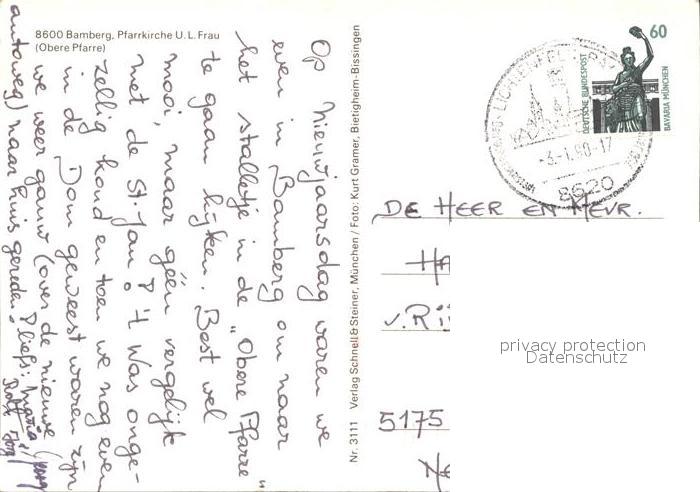 8600 Bamberg, Pfarrkirche U. L. Frau
(Obere Pfarre)
Op Nieuwjaarsdag waren we
even in Bamberg om naar
het stalletje in de "Obere Pfarre"
te gaan kijken. Best wel
mooi, maar géén vergelijk
met de St. Jan! 't Was onge-
zellig koud en toen we nog even
in de Dom geweest waren zijn
we weer gauw (over de nieuwe
autoweg) naar huis gereden.
liefs: Maria,
Nr. 3111 Verlag Schnell & Steiner, München / Foto: Kurt Gramer, Bietigheim-Bissingen
60
DEUTSCHE BUNDESPOST
BAVARIA MÜNCHEN
-3.-1.90-17
8620
DE HEER EN MEVR.
v. Ri
5175
privacy protection
Datenschutz